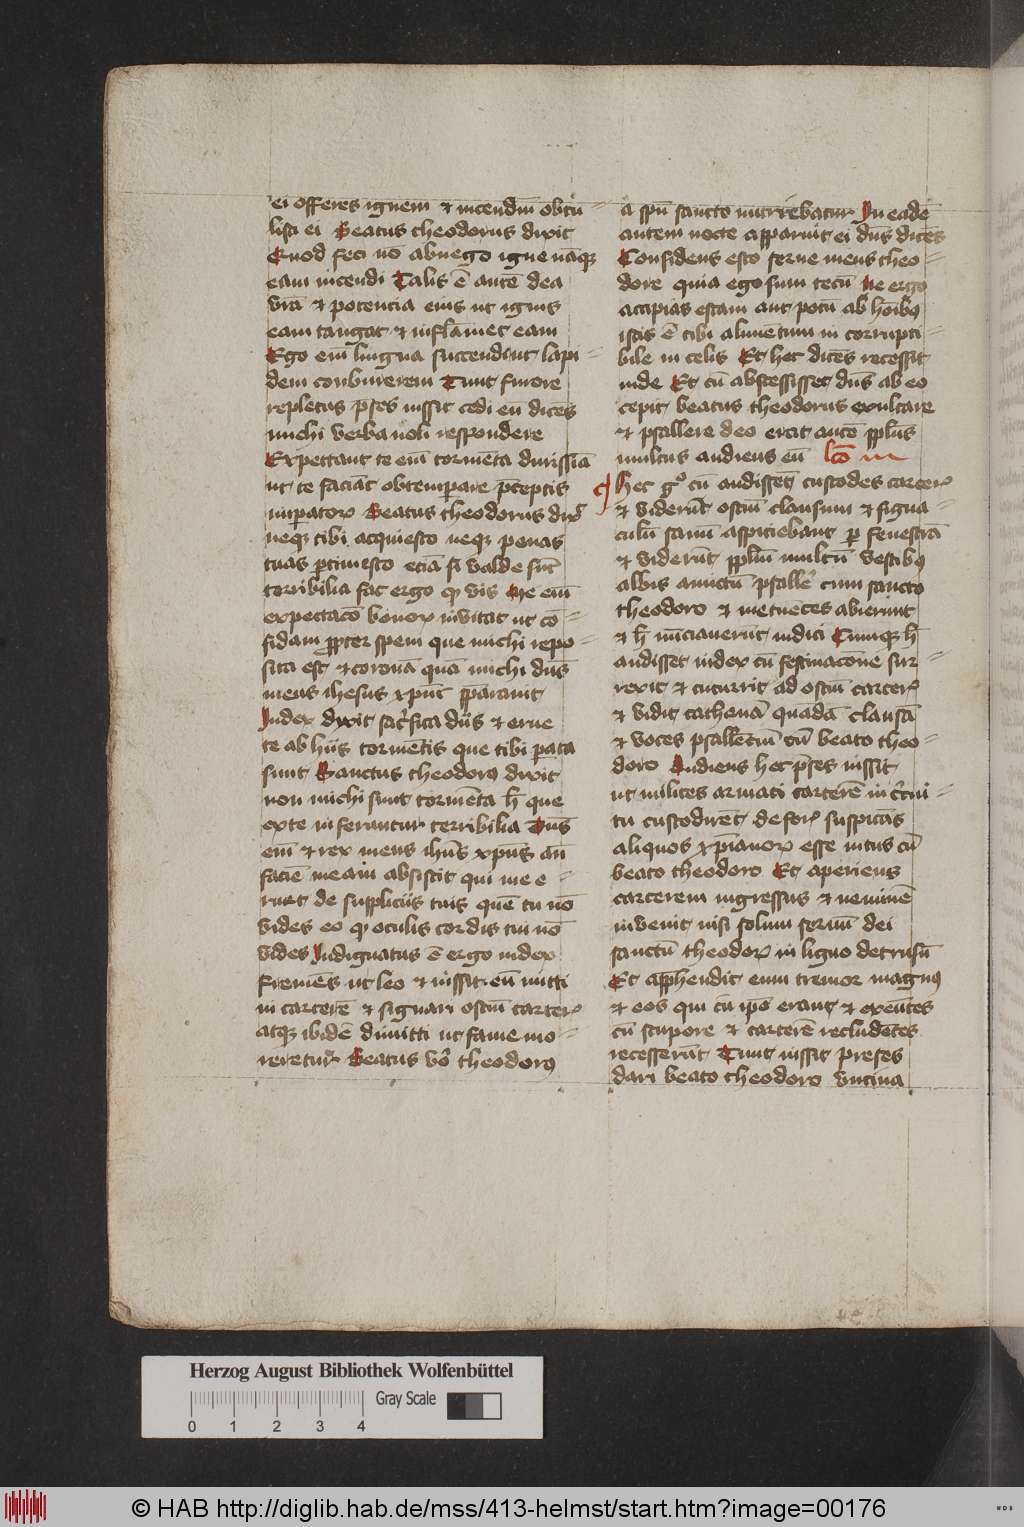 ei offeres ignem et incendiū obtu
listi ei Beatus theodorus dixit
Quod feci nō abnego igne nāq;
eam incendi Talis ē autē dea
vrā et potencia eius ut ignis
eam tangat et inflāmet eam
Ego eni lingua succendunt lapi
dem conburerem Tunc furore
repletus p̄ses iussit cedi eū dicēs
michi verba noli respondere
Expectant te eni tormēta durissīa
ut te faciāt obtemperare p̄ceptis
imperatoꝝ Beatus theodorus dix̄
neq; tibi acquiesco neq; penas
tuas ꝑtimesco etiā si valde sūt
terribilia fac ergo qd vis Me eni
expectacō bonoꝝ invitat ut cō
fidam ꝓpter spem que michi repo
sita est et coronā quā michi dn̄s
meus ihesus xp̄us p̄parauit
Iudex dixit sac̄fica diis et erue
te ab hiis tormētis que tibi parata
sunt Sanctus theodorꝰ dixit
non michi sunt tormēta h̄ que
exte inferuntur terribilia Dn̄s
eni et rex meus ihūs xp̄us an̄
faciē meam absistit qui me e
ruet de suppliciis tuis quē tu nō
vides eo qd oculis cordis tui nō
vides Indignatus ē ergo iudex
fremēs ut leo et iussit eū mitti
in carcerē et signari ostiū carceꝝ
atq; ibidē dimitti ut fame mo
reretur Beatus vō theodorꝰ
a spū sancto nutriebatur In eadē
autem nocte apparuit ei dn̄s dicēs
Confidens esto serue meus theo
dore quia ego sum tecū Ne ergo
accipias escam aut potū ab hōibꝰ
istis ē tibi alimētum in corrupti
bile in celis Et hec dicēs recessit
inde Et cū abscessisset dn̄s ab eo
cepit beatus theodorus exultare
et psallere deo erat autē pplūs
multus audiens eū lcō iii
Hec gº cū audissēt custodes carceꝝ
et viderūt ostiū clausum et signa
culū sanū aspiciebant ꝑ fenestrā
et viderūt pplm̄ multū vestibꝰ
albis amictū psallē cum sancto
theodoro et metuētes abierunt
et h̄ nūciauerūt iudici Cumq; h̄
audisset iudex cū festinacōne sur
rexit et cucurrit ad ostiū carceꝝ
et vidit cathenā quādā clausā
et voces psallētiū cū beato theo
doro Audiens hec p̄ses iussit
ut milites armati carcerē in c̄cui
tu custodiret de foꝝ suspicās
aliquos xp̄ianoꝝ esse intus cū
beato theodoro Et aperiens
carcerem ingressus et neminē
invenit nisi solum seruū dei
sanctū theodoꝝ in ligno detrusū
Et apphendit eum tremor magnꝰ
et eos qui cū ip̄o erant et exeūtes
cū stupore et carcerē recludētes
recesserūt Tunc iussit preses
dari beato theodoro vncina
Herzog August Bibliothek Wolfenbüttel
Gray Scale
0 1 2 3 4
© HAB http://diglib.hab.de/mss/413-helmst/start.htm?image=00176